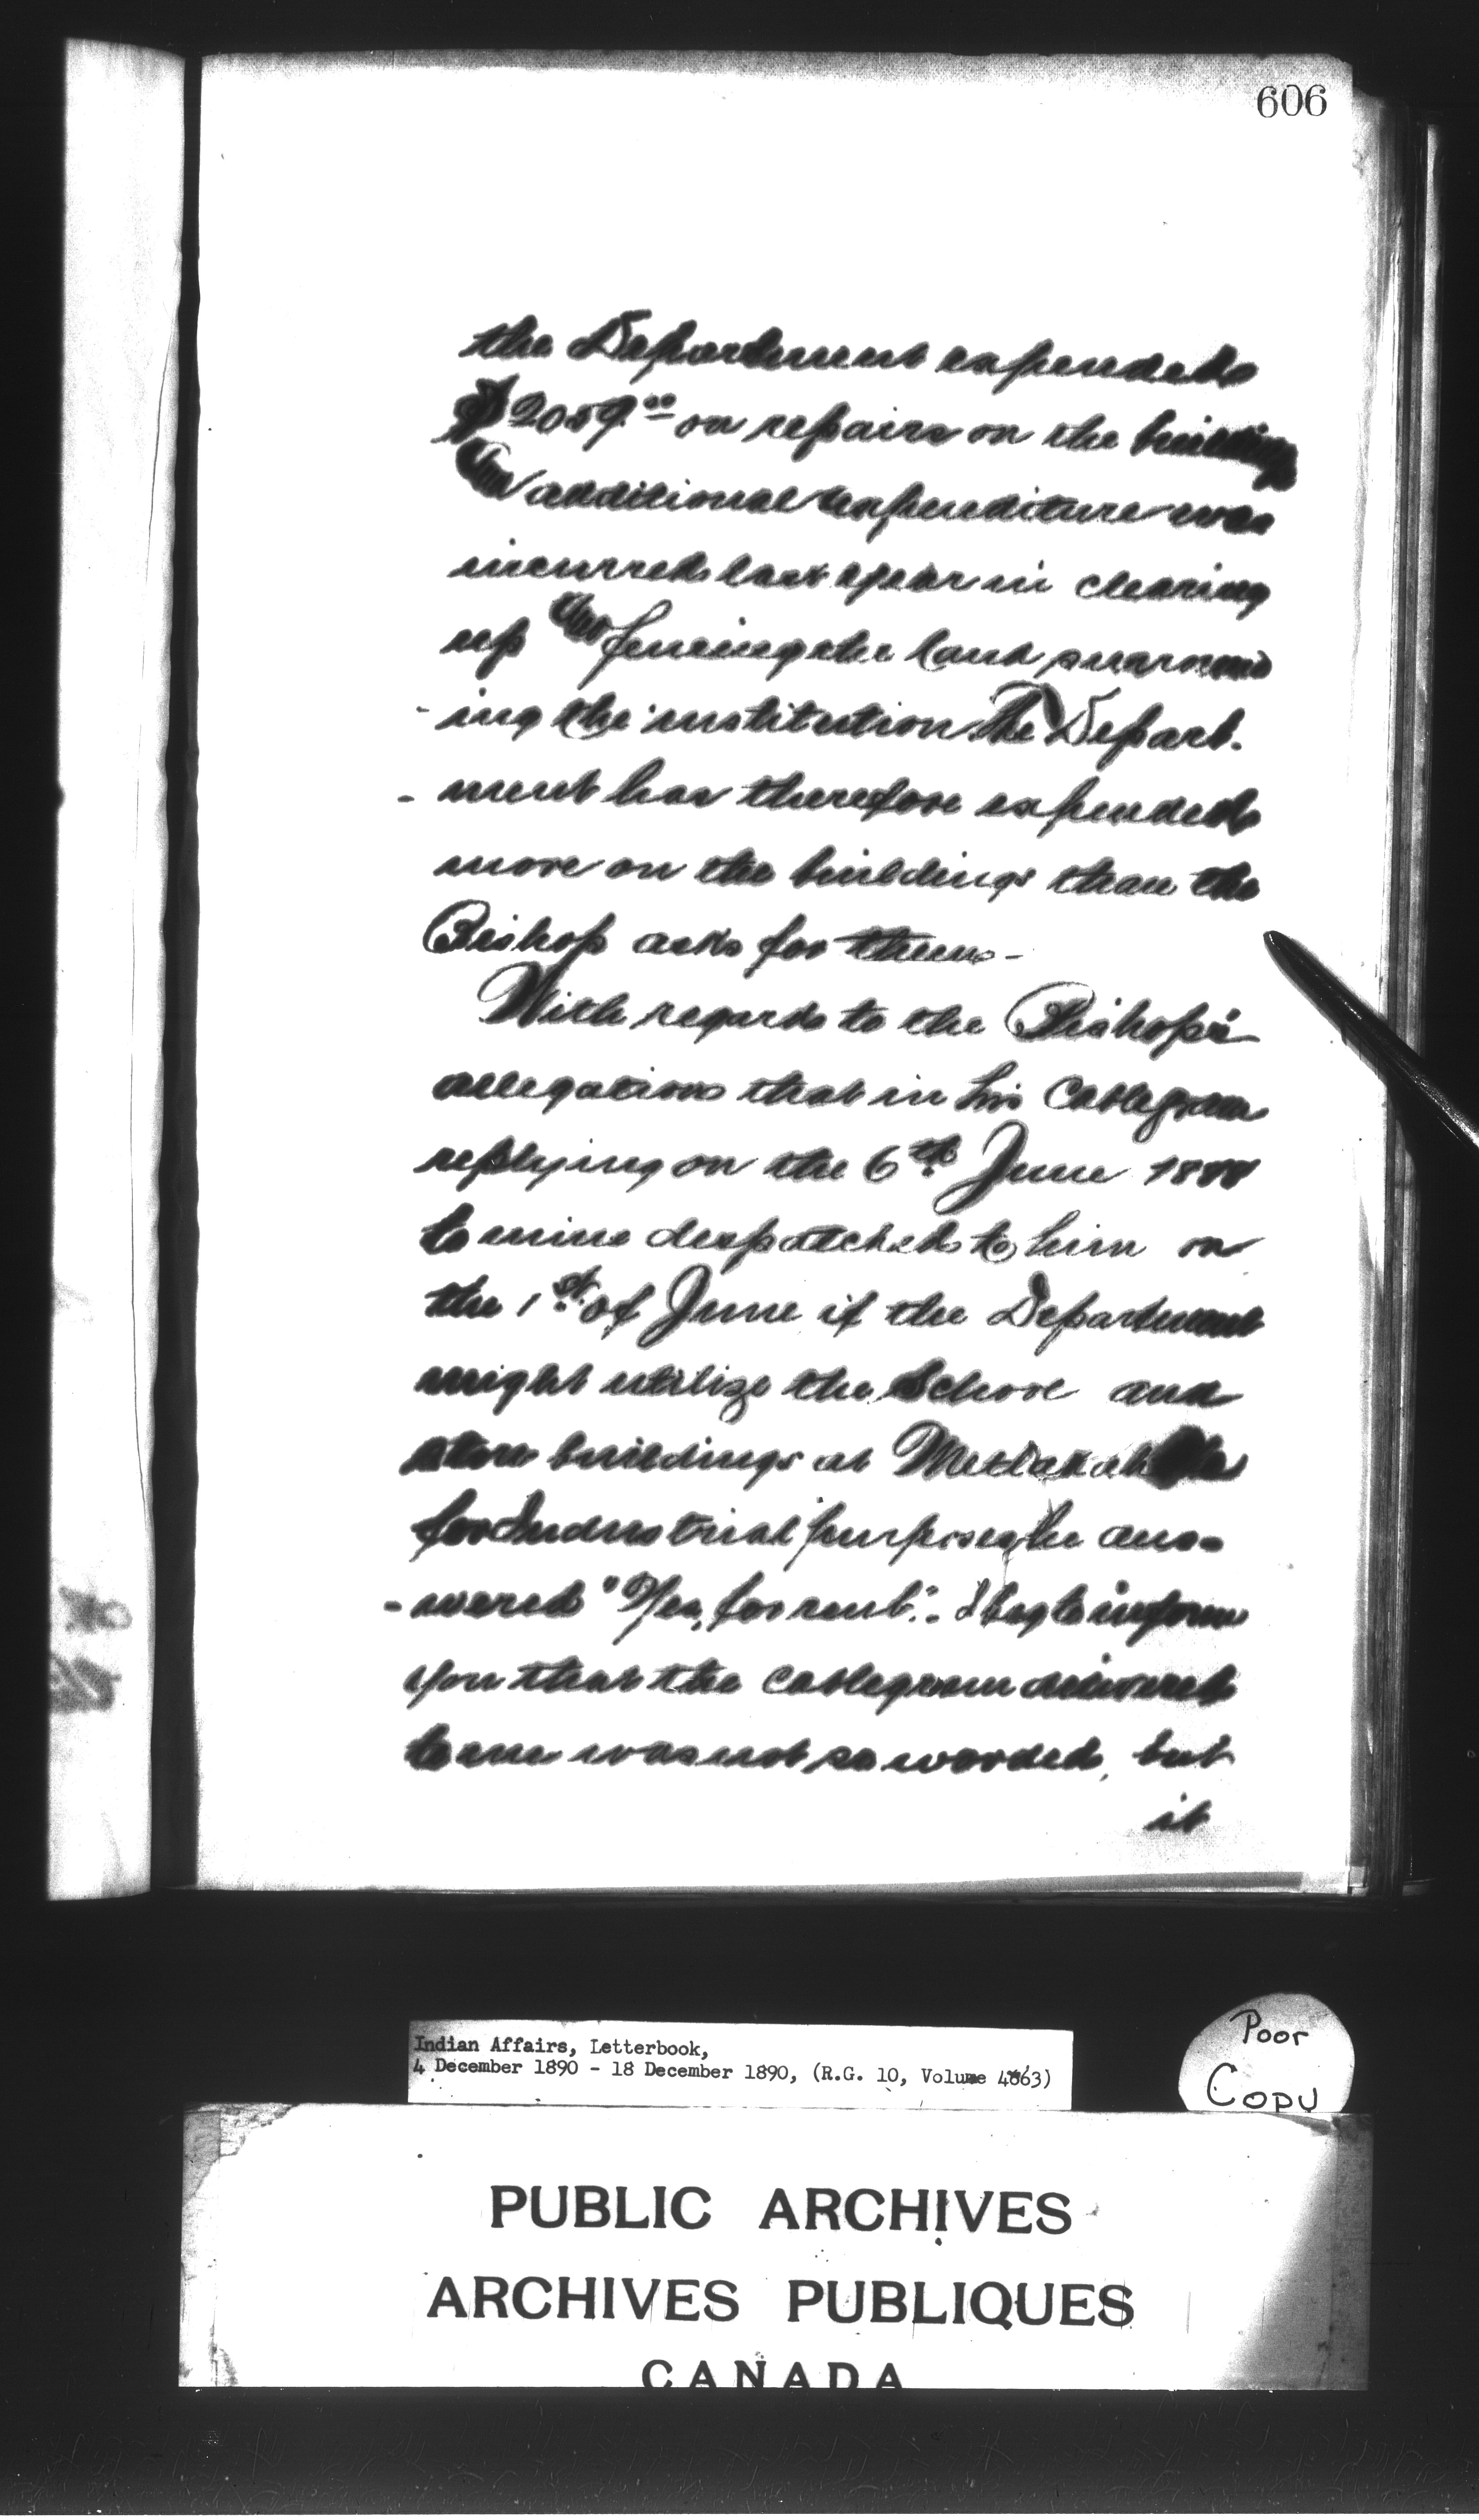 606
the Department expended
$2059.00 on repairs on the building
An additional expenditure was
incurred last year in clearing
up and fencing the land surround
-ing the institution. The Depart.
-ment has therefore expended
more on the buildings than the
Bishop asks for them-
With regard to the Bishop's
allegations that in his Cablegram
replying on the 6th June 1888
to mine despatched to him on
the 1st of June if the Department
might utilize the School and
buildings at Metlakahtla
for Industrial purposes, he ans-
-wered "Yes, for rent". I beg to inform
you that the Cablegram delivered
to me was not so worded, but
it
Indian Affairs, Letterbook,
4 December 1890 - 18 December 1890, (R.G. 10, Volume 4863)
Poor
Copy
PUBLIC ARCHIVES
ARCHIVES PUBLIQUES
CANADA